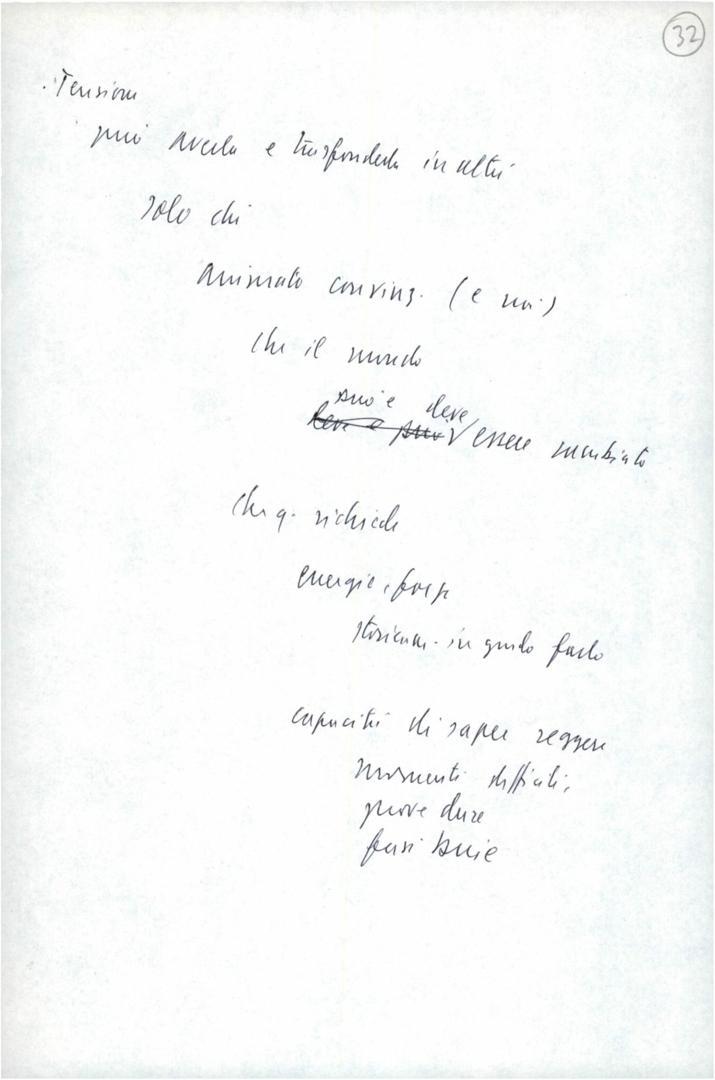 32
. Tensione
può averla e trasfonderla in altri
solo chi
animato convinz. (e noi)
che il mondo
può e deve
deve e può essere cambiato
che q. richiede
energie, forze
storicam. in grado farlo
capacità di saper reggere
momenti difficili,
prove dure
fasi buie